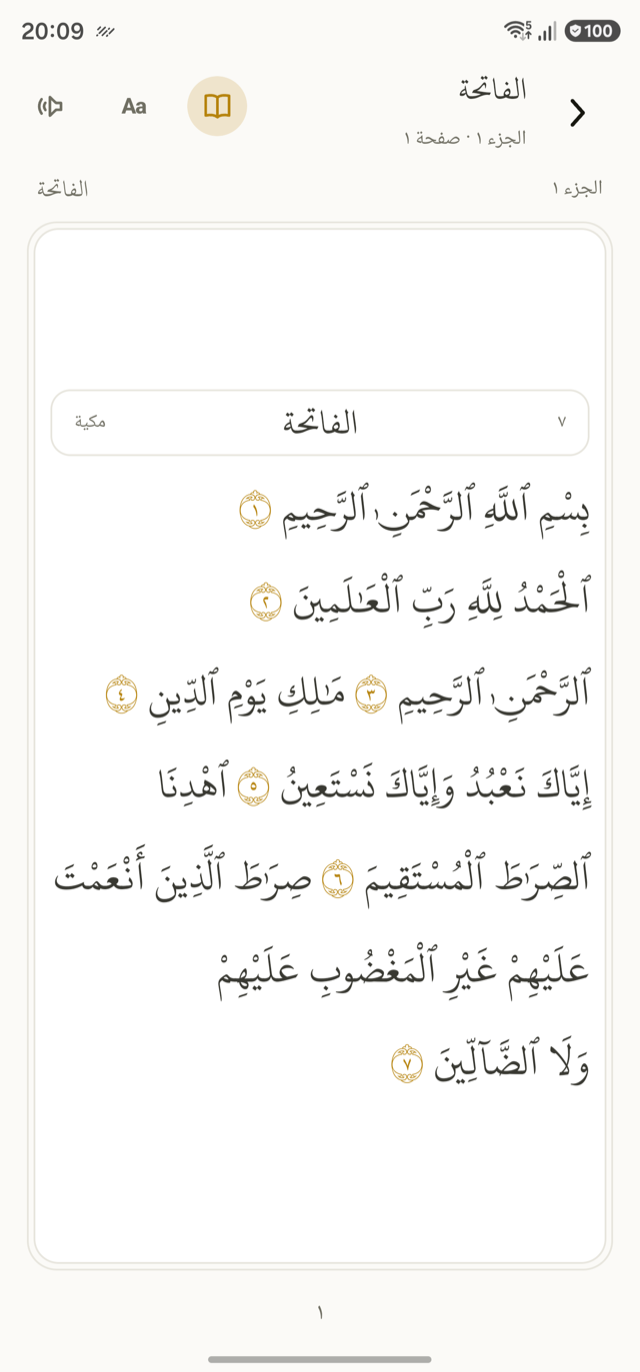 20:09
100
الفاتحة
الجزء ١ · صفحة ١
Aa
الجزء ١
الفاتحة
٧
الفاتحة
مكية
بِسْمِ ٱللَّهِ ٱلرَّحْمَٰنِ ٱلرَّحِيمِ ١
ٱلْحَمْدُ لِلَّهِ رَبِّ ٱلْعَٰلَمِينَ ٢
ٱلرَّحْمَٰنِ ٱلرَّحِيمِ ٣ مَٰلِكِ يَوْمِ ٱلدِّينِ ٤
إِيَّاكَ نَعْبُدُ وَإِيَّاكَ نَسْتَعِينُ ٥ ٱهْدِنَا
ٱلصِّرَٰطَ ٱلْمُسْتَقِيمَ ٦ صِرَٰطَ ٱلَّذِينَ أَنْعَمْتَ
عَلَيْهِمْ غَيْرِ ٱلْمَغْضُوبِ عَلَيْهِمْ
وَلَا ٱلضَّآلِّينَ ٧
١